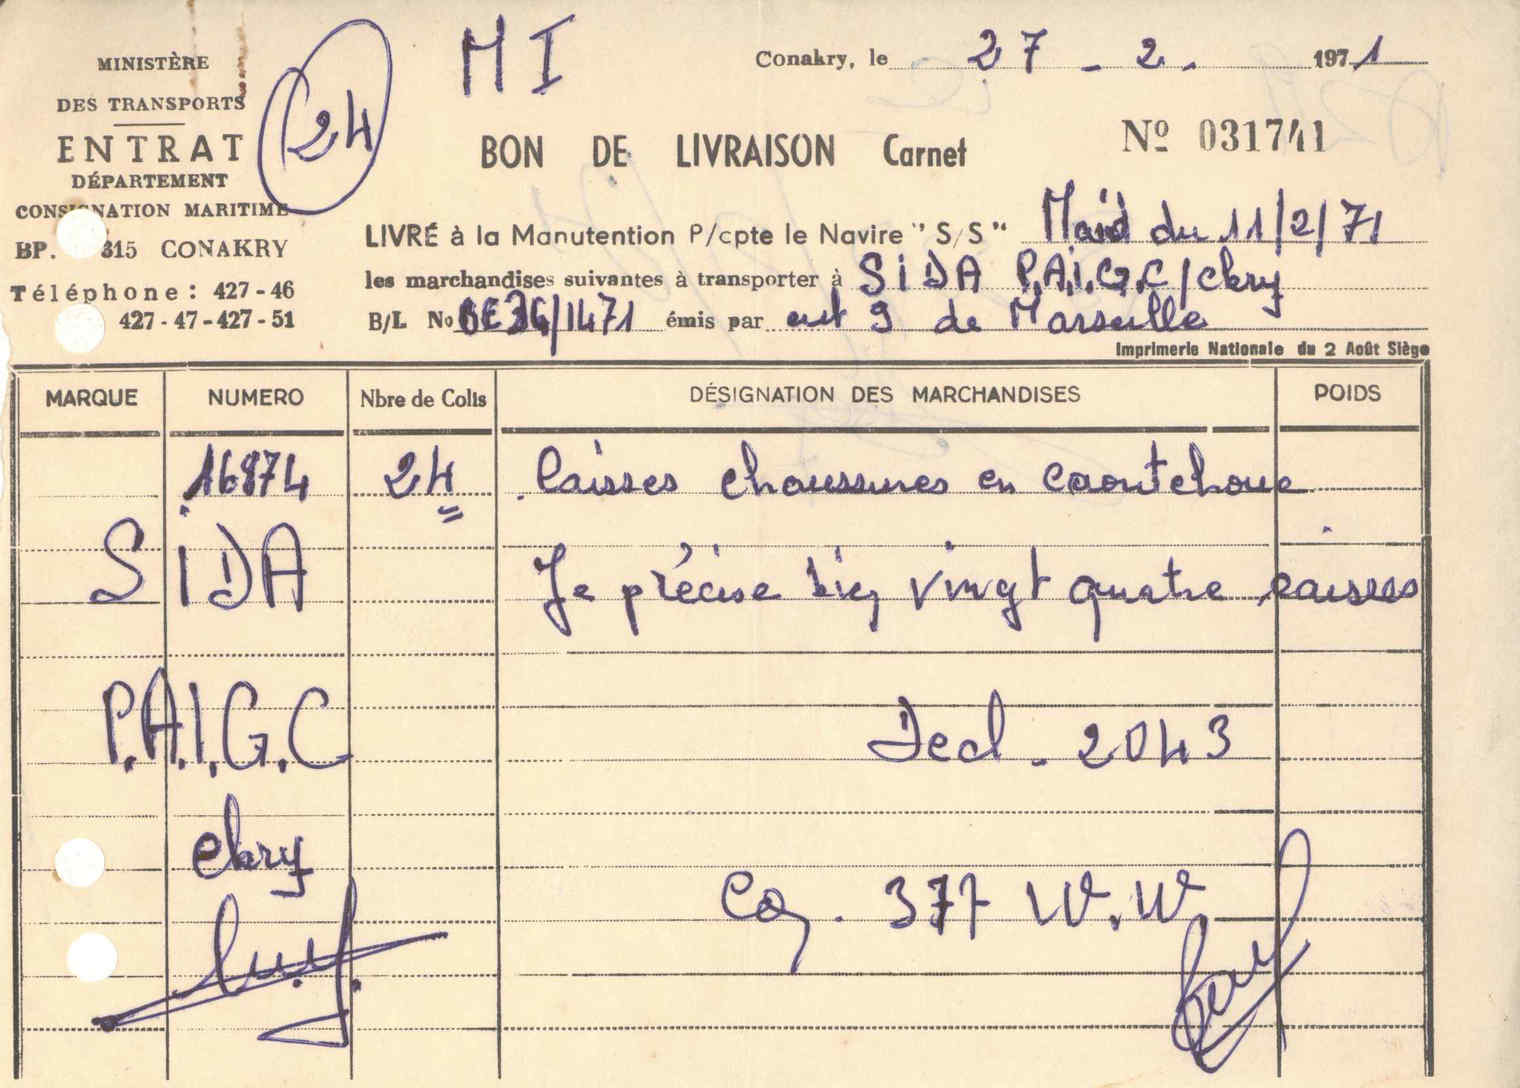 MINISTÈRE
DES TRANSPORTS
ENTRAT
DÉPARTEMENT
CONSIGNATION MARITIME
BP. 315 CONAKRY
Téléphone : 427-46
427-47-427-51
24
M I
Conakry, le 27 - 2 - 1971
BON DE LIVRAISON Carnet
Nº 031741
LIVRÉ à la Manutention P/cpte le Navire "S/S" du 11/2/71
les marchandises suivantes à transporter à SIDA P.A.I.G.C/Ckry
B/L No /1471 émis par 9 de Marseille
Imprimerie Nationale du 2 Août Siège
MARQUE NUMERO Nbre de Colis DÉSIGNATION DES MARCHANDISES POIDS
16874 24 Caisses chaussures en caoutchouc
SIDA Je précise bien vingt quatre caisses
P.A.I.G.C Decl. 2043
Ckry
377 W.W